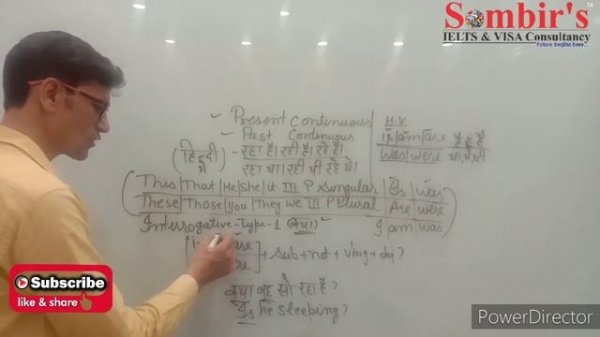 Sombir's
IELTS & VISA Consultancy
Present Continuous
H.V
Past Continuous
is/am/are
(हिन्दी में) - रहा है। रही है। रहे हैं।
was/were था, थे, थी
रहा था। रही थी रहे थे।
This|That|He|She|it III P singular|Is|was
These|Those|You|They we III P plural|Are|were
Interrogative-Type-1 (क्या) I|am|was
+ sub + not + Ving + obj?
क्या वह सो रहा है?
Is he sleeping?
Subscribe
like & share
PowerDirector